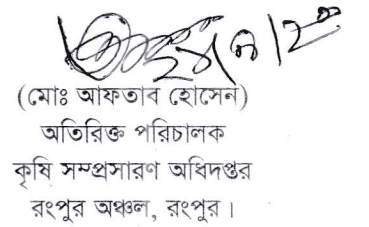 (মোঃ আফতাব হোসেন)
অতিরিক্ত পরিচালক
কৃষি সম্প্রসারণ অধিদপ্তর
রংপুর অঞ্চল, রংপুর।